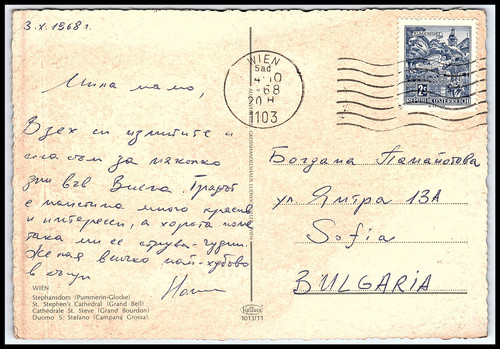 3.X.1968г.
Мила мамо,
Взех си изпитите и
сега съм за няколко
дни във Виена. Градът
е наистина много красив
и интересен, а хората поне
така ми се струва - чудни.
Желая всичко най-хубаво
WIEN
Stephansdom (Pummerin-Glocke)
St. Stephen's Cathedral (Grand Bell)
Cathédrale St. Steve (Grand Bourdon)
Duomo S. Stefano (Campana Grossa)
1013/11
WIEN
-68
20H
1103
2S
REPUBLIK ÖSTERREICH
Богдана Панайотова
ул. Янтра 13А
Sofia
BULGARIA